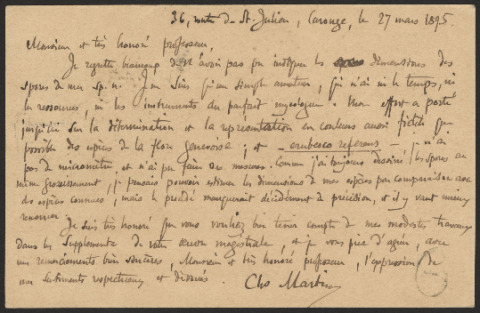 36, route de St. Julien, Carouge, le 27 mars 1895.
Monsieur et très honoré professeur,
Je regrette beaucoup de n'avoir pas pu indiquer les dimensions des
spores de ma sp. n. Je ne suis qu'un simple amateur, qui n'ai ni le temps, ni
les ressources, ni les instruments du parfait mycologue. Mon effort a porté
jusqu'ici sur la détermination et la représentation en couleurs aussi fidèle que
possible des espèces de la flore genevoise ; et – erubesco referens – je n'ai
pas de micromètre, et n'ai pu faire des mesures. Comme j'ai toujours dessiné les spores au
même grossissement, je pensais pouvoir estimer les dimensions de mes espèces par comparaison avec
des espèces connues ; mais le procédé manquerait décidément de précision, et il vaut mieux
renoncer.
Je suis très honoré que vous vouliez bien tenir compte de mes modestes travaux
dans les Suppléments de votre œuvre magistrale, et je vous prie d'agréer, avec
mes remerciements bien sincères, Monsieur et très honoré professeur, l'expression de
mes sentiments respectueux et dévoués.
Chs Martin